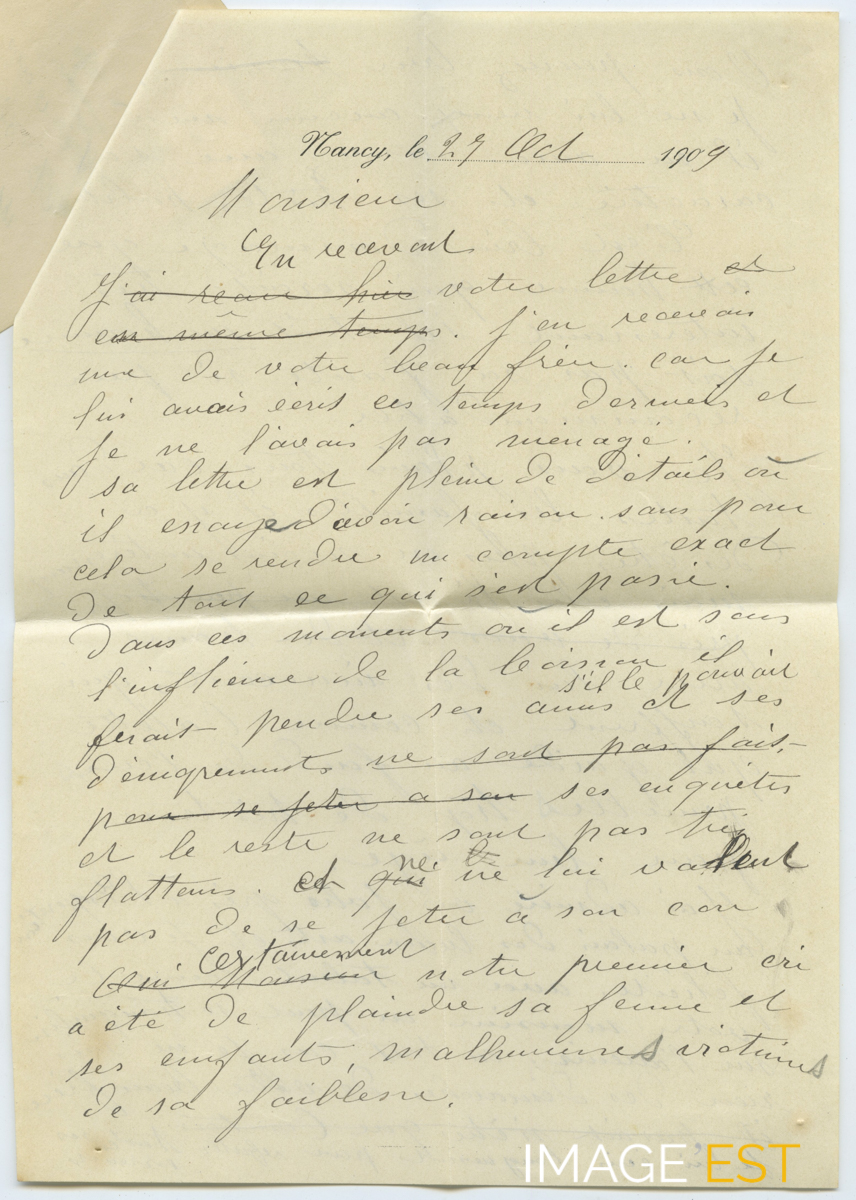 Nancy, le 27 Oct 1909
Monsieur
En recevant
J'ai reçu hier votre lettre et
en même temps. j'en recevais
une de votre beau frère. car je
lui avais écrit ces temps derniers et
je ne l'avais pas ménagé.
sa lettre est pleine de détails où
il essaye d'avoir raison. sans pour
cela se rendre un compte exact
de tout ce qui s'est passé.
Dans ces moments où il est sous
l'influence de la boisson il
s'il le pouvait
ferait pendre ses amis et ses
dénigrements ne sont pas fais,
pour se jeter à son ses enquêtes
et le reste ne sont pas très
flatteurs. et qui ne lui valent
pas de se jeter à son cou
Certainement
Oui Monsieur notre premier cri
a été de plaindre sa femme et
ses enfants, malheureuses victimes
de sa faiblesse.
IMAGE EST